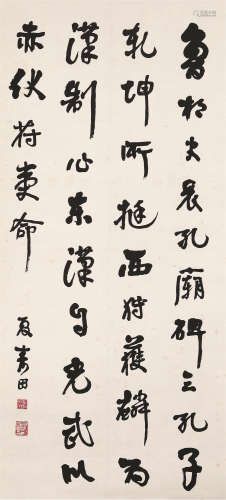 魯相史晨孔廟碑云孔子
乾坤所挺西狩獲麟為
漢制作東漢自光武以
赤伏符受命
夏壽田